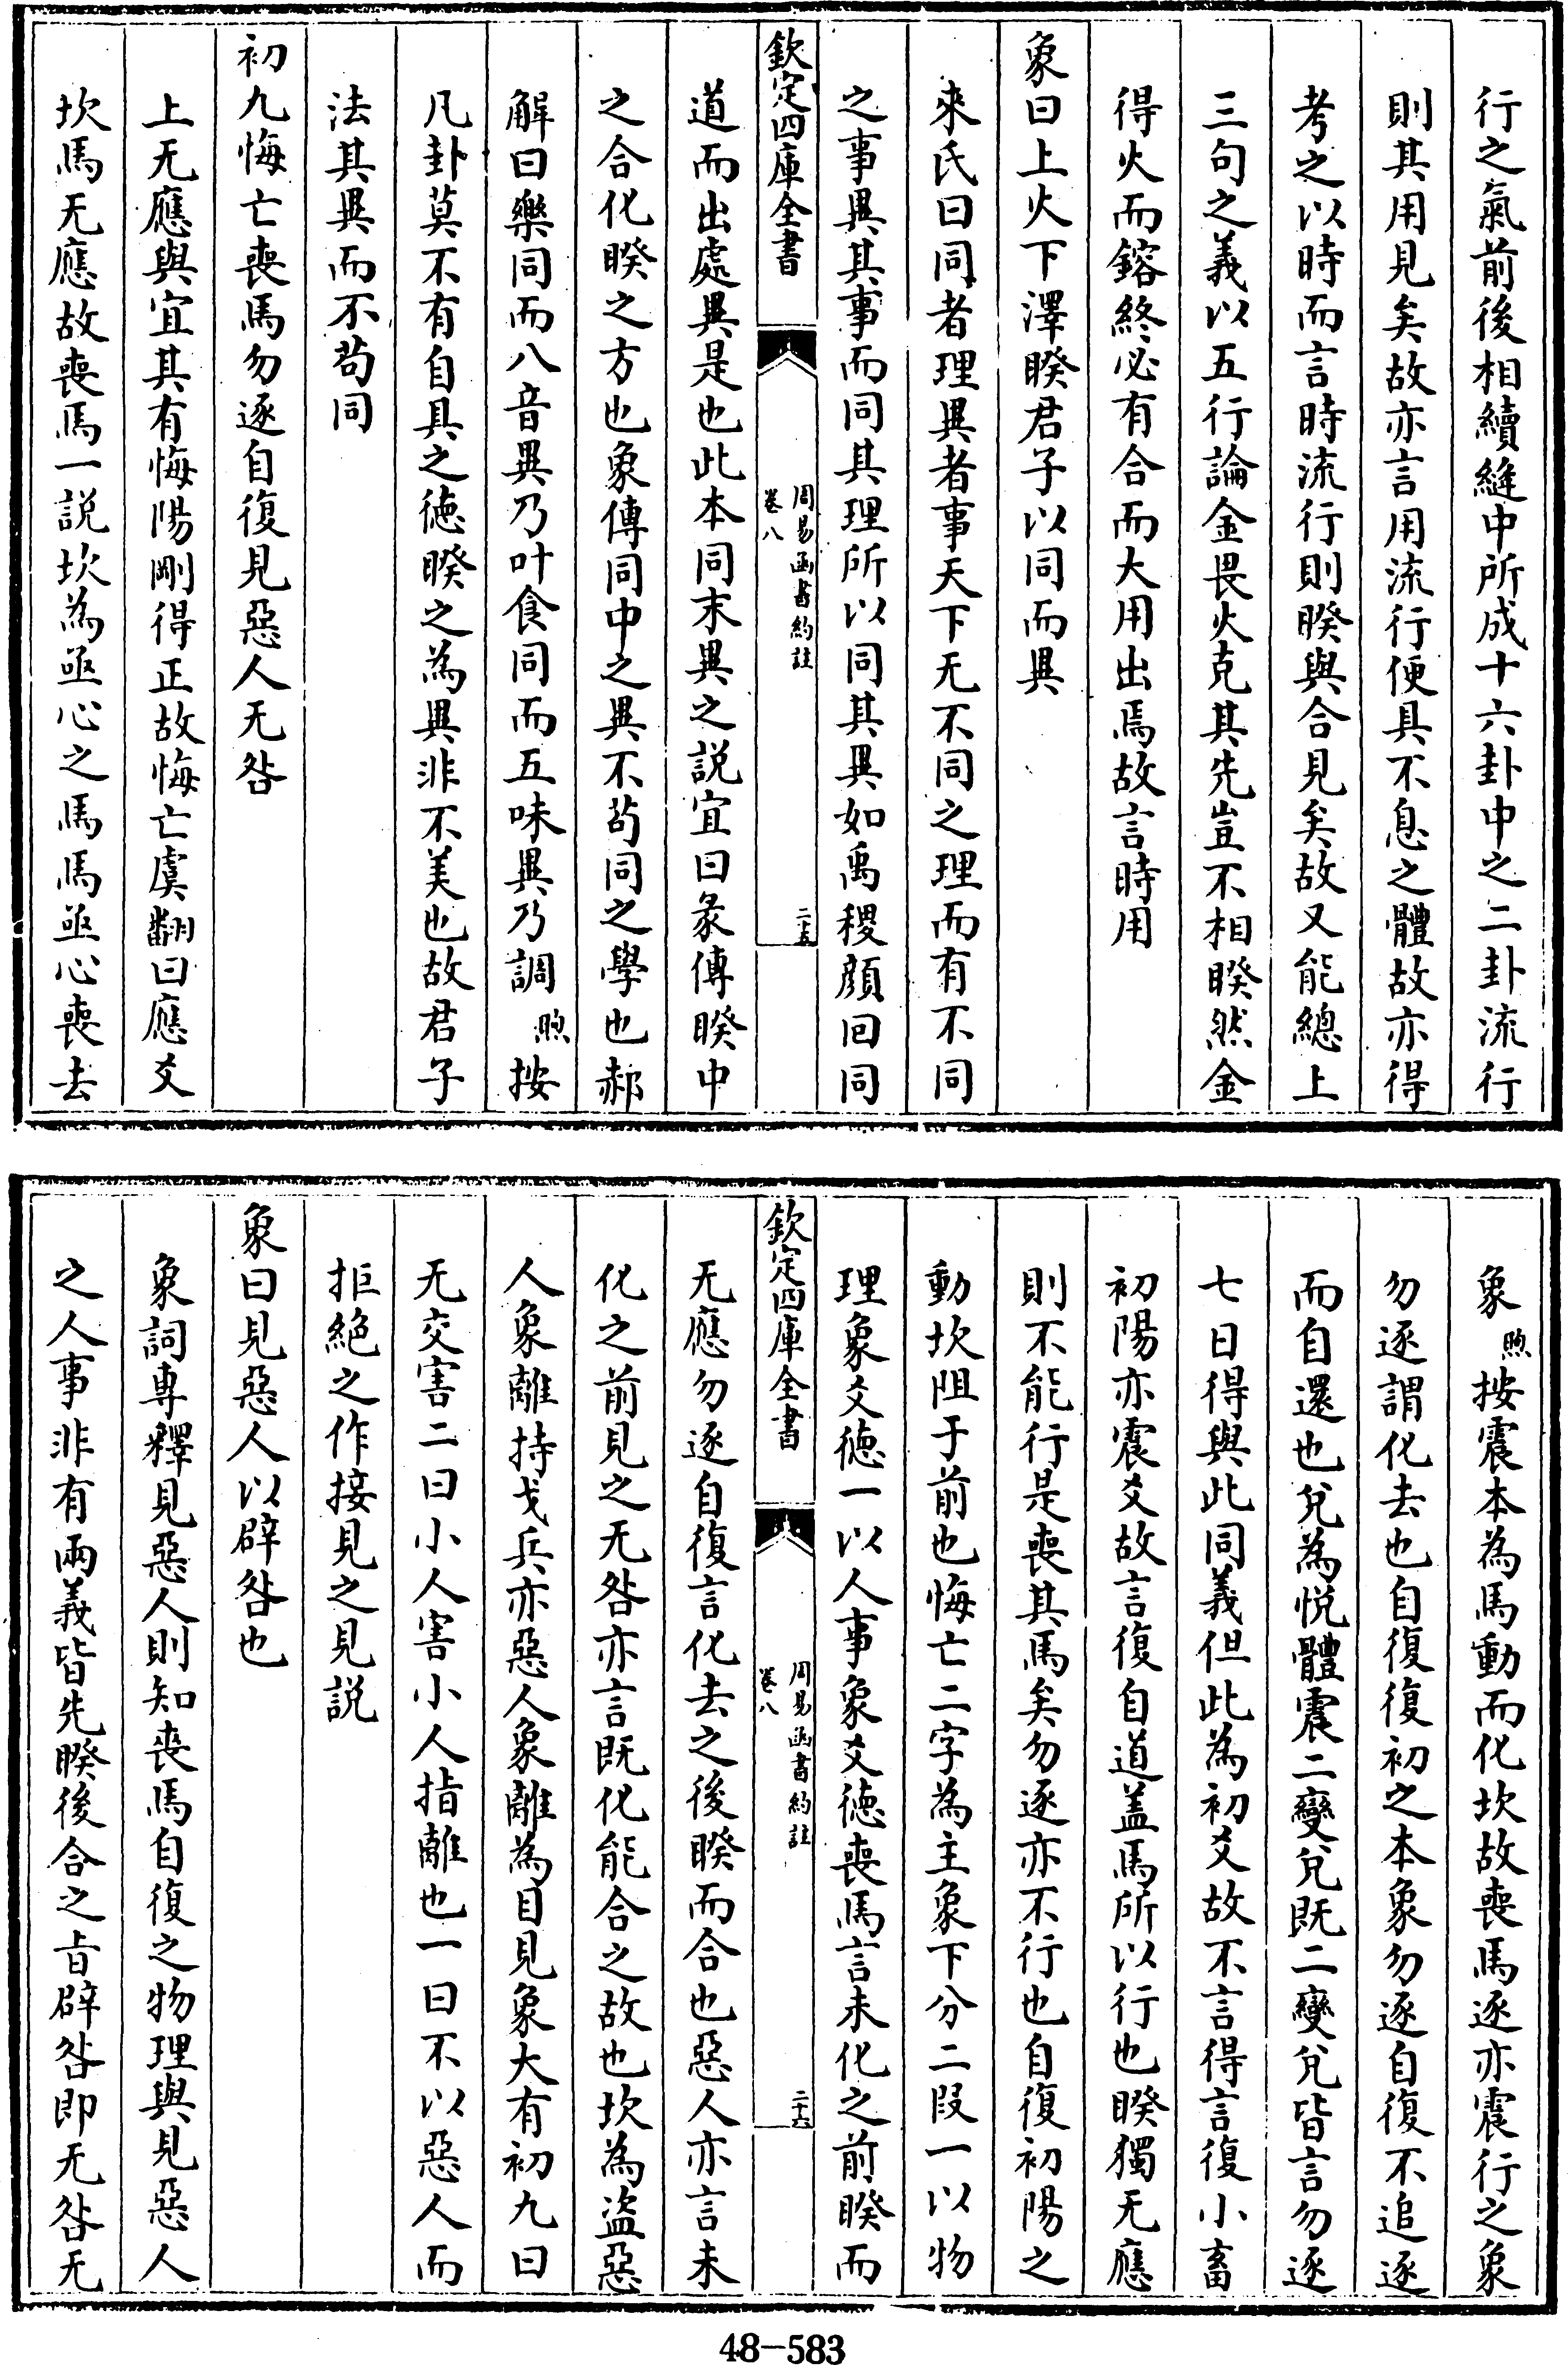 行之氣前後相續縫中所成十六卦中之二卦流行
則其用見矣故亦言用流行便具不息之體故亦得
考之以時而言時流行則睽與合見矣故又能總上
三句之義以五行論金畏火克其先豈不相睽然金
得火而鎔終必有合而大用出焉故言時用
象曰上火下澤睽君子以同而異
來氏曰同者理異者事天下无不同之理而有不同
之事異其事而同其理所以同其異如禹稷顔回同
欽定四庫全書
周易函書約註
卷八
二十五
道而出處異是也此本同末異之説宜曰彖傳睽中
之合化睽之方也象傳同中之異不苟同之學也郝
解曰樂同而八音異乃叶食同而五味異乃調煦按
凡卦莫不有自具之徳睽之為異非不美也故君子
法其異而不苟同
初九悔亡喪馬勿逐自復見惡人无咎
上无應與宜其有悔陽剛得正故悔亡虞翻曰應爻
坎馬无應故喪馬一説坎為亟心之馬馬亟心喪去
象煦按震本為馬動而化坎故喪馬逐亦震行之象
勿逐謂化去也自復復初之本象勿逐自復不追逐
而自還也兌為悅體震二變兌既二變兌皆言勿逐
七日得與此同義但此為初爻故不言得言復小畜
初陽亦震爻故言復自道盖馬所以行也睽獨无應
則不能行是喪其馬矣勿逐亦不行也自復初陽之
動坎阻于前也悔亡二字為主象下分二段一以物
理象爻徳一以人事象爻徳喪馬言未化之前睽而
欽定四庫全書
周易函書約註
卷八
二十六
无應勿逐自復言化去之後睽而合也惡人亦言未
化之前見之无咎亦言既化能合之故也坎為盗惡
人象離持戈兵亦惡人象離為目見象大有初九曰
无交害二曰小人害小人指離也一曰不以惡人而
拒絶之作接見之見説
象曰見惡人以辟咎也
象詞專釋見惡人則知喪馬自復之物理與見惡人
之人事非有兩義皆先睽後合之旨辟咎即无咎无
48-583